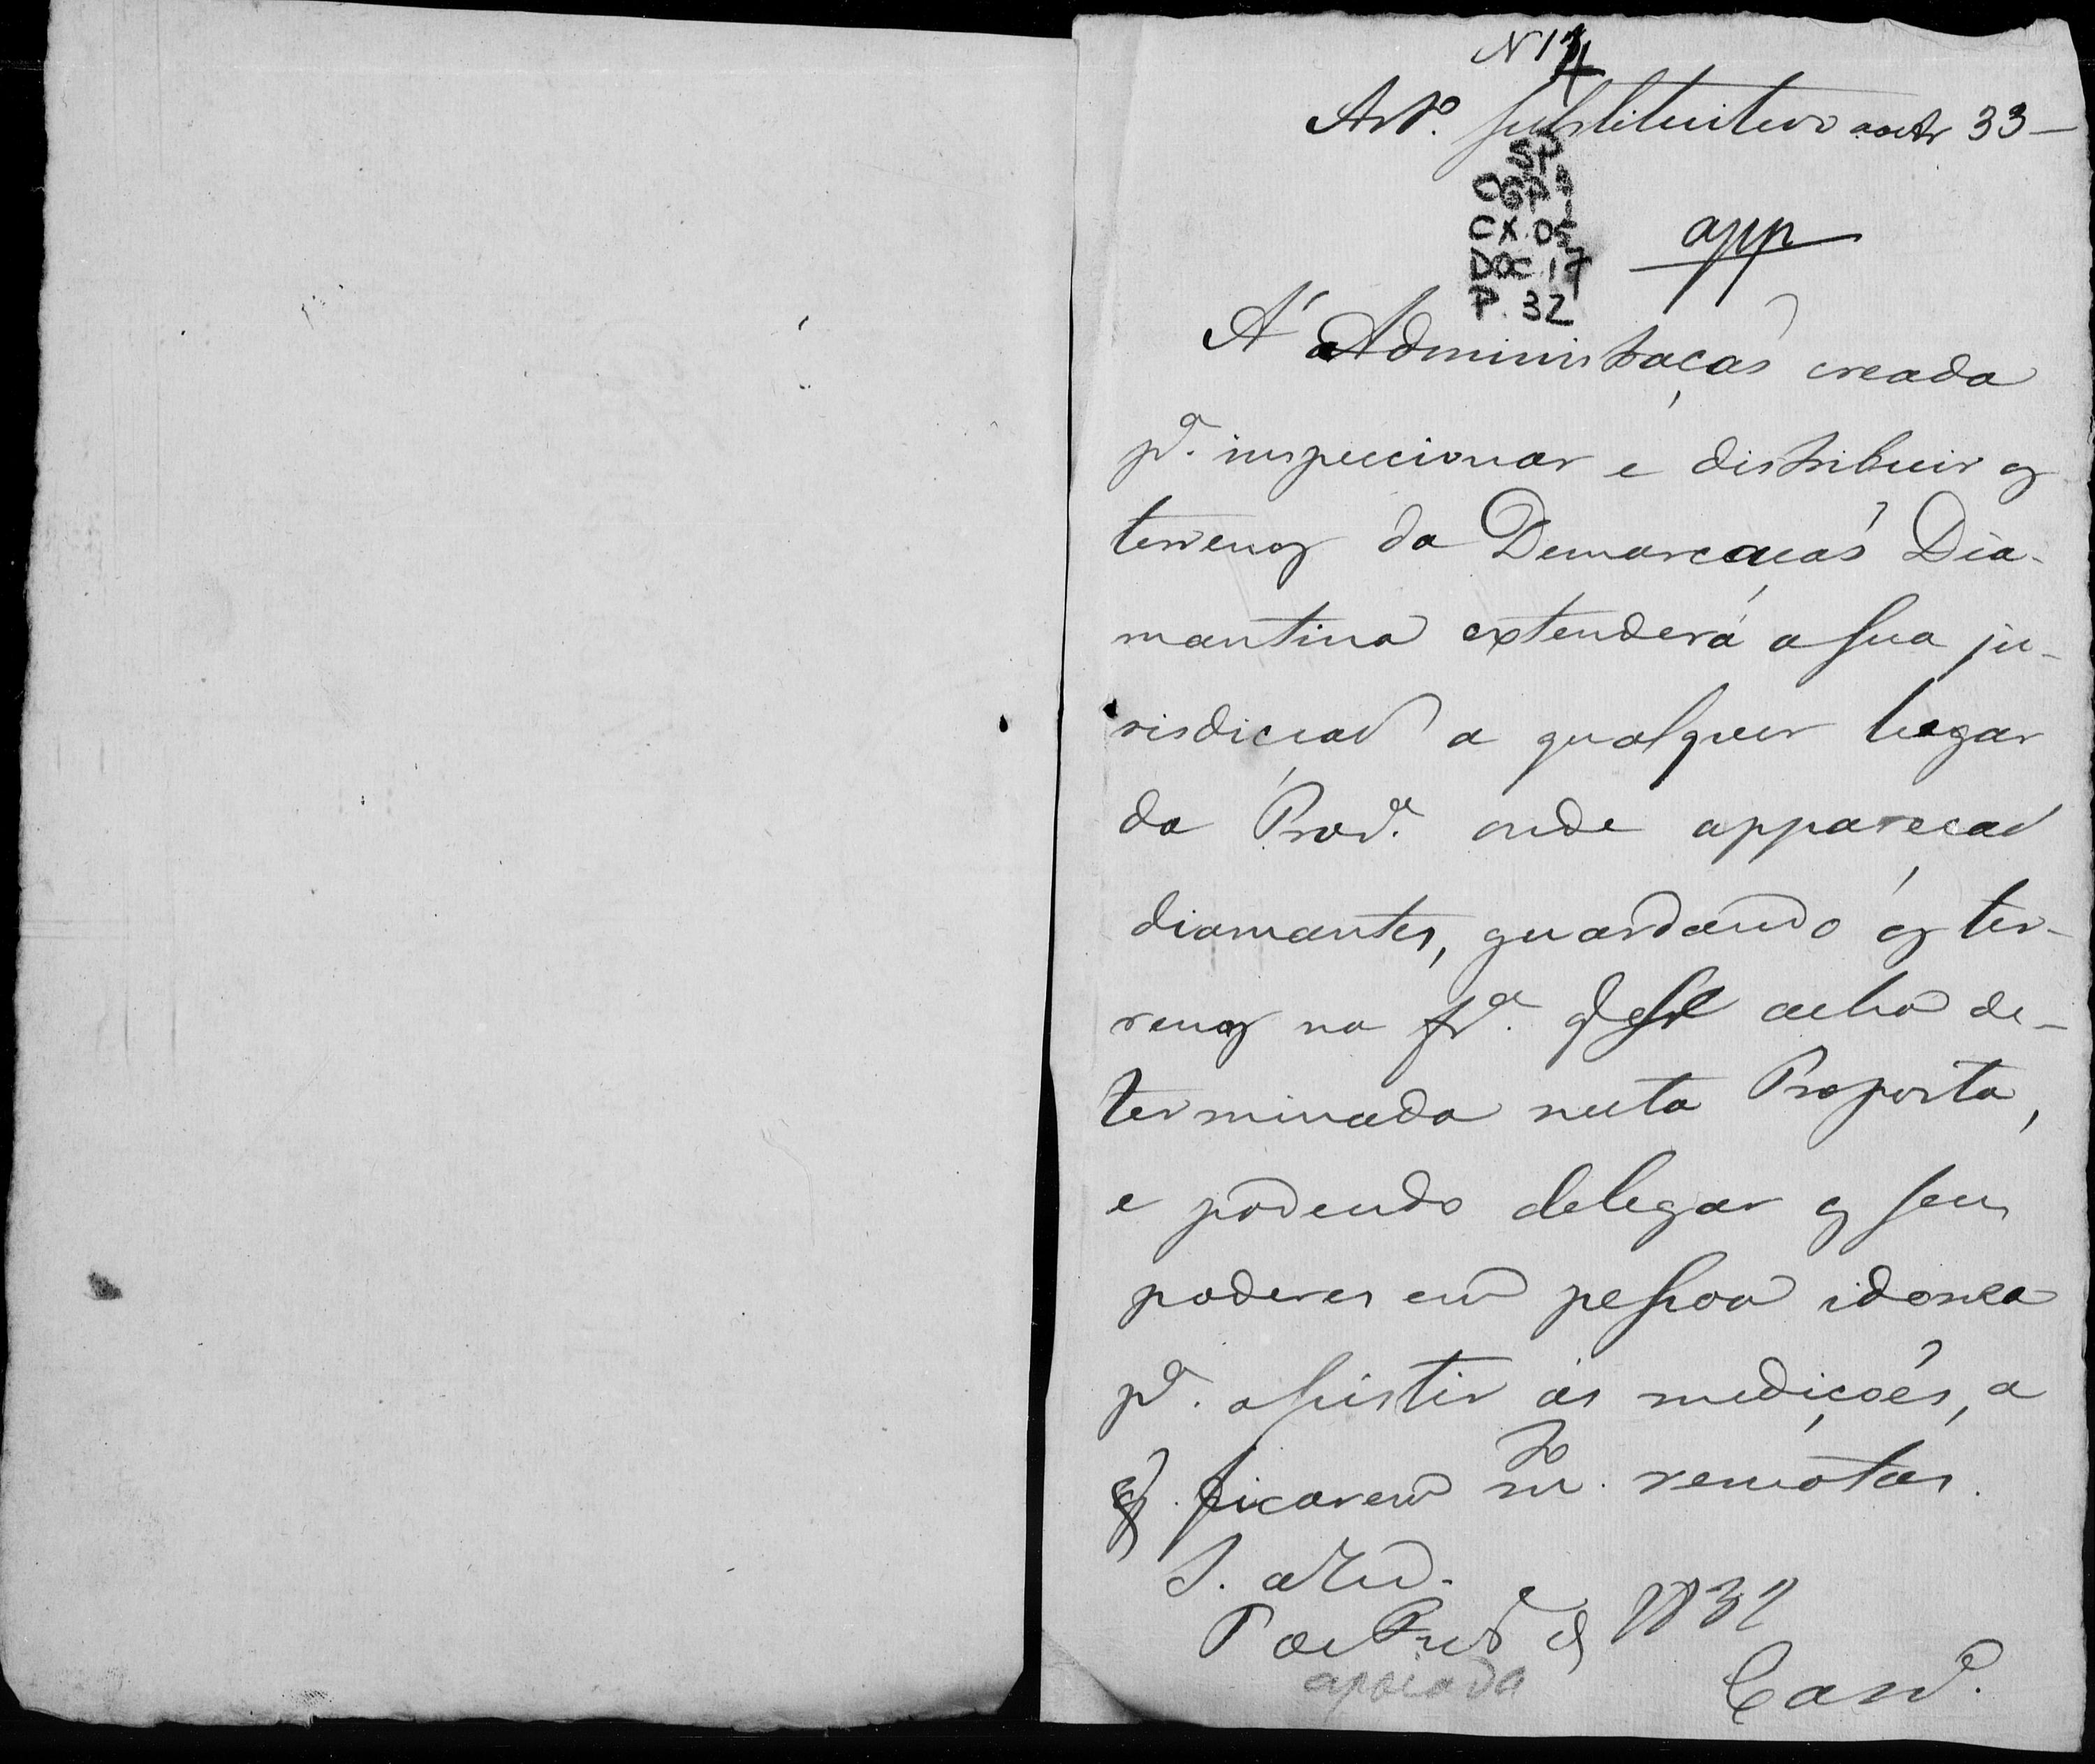 N 14
Art.º substitutivo ao Art 33 —
SP
CX.05
DOC.17
P. 32
app
A' Administração creada
p.ª inspeccionar e distribuir os
terrenos da Demarcação Dia-
mantina extenderá a sua ju-
risdicção a qualquer lugar
da Prov.ª onde appareção
diamantes, guardando os ter-
renos na f.ª q' se acha de-
terminada nesta Proposta,
e podendo delegar os seus
poderes em pessoa idonea
p.ª assistir ás medições, a
q. ficarem m.to remotas.
S. a R.
1832
apoiada